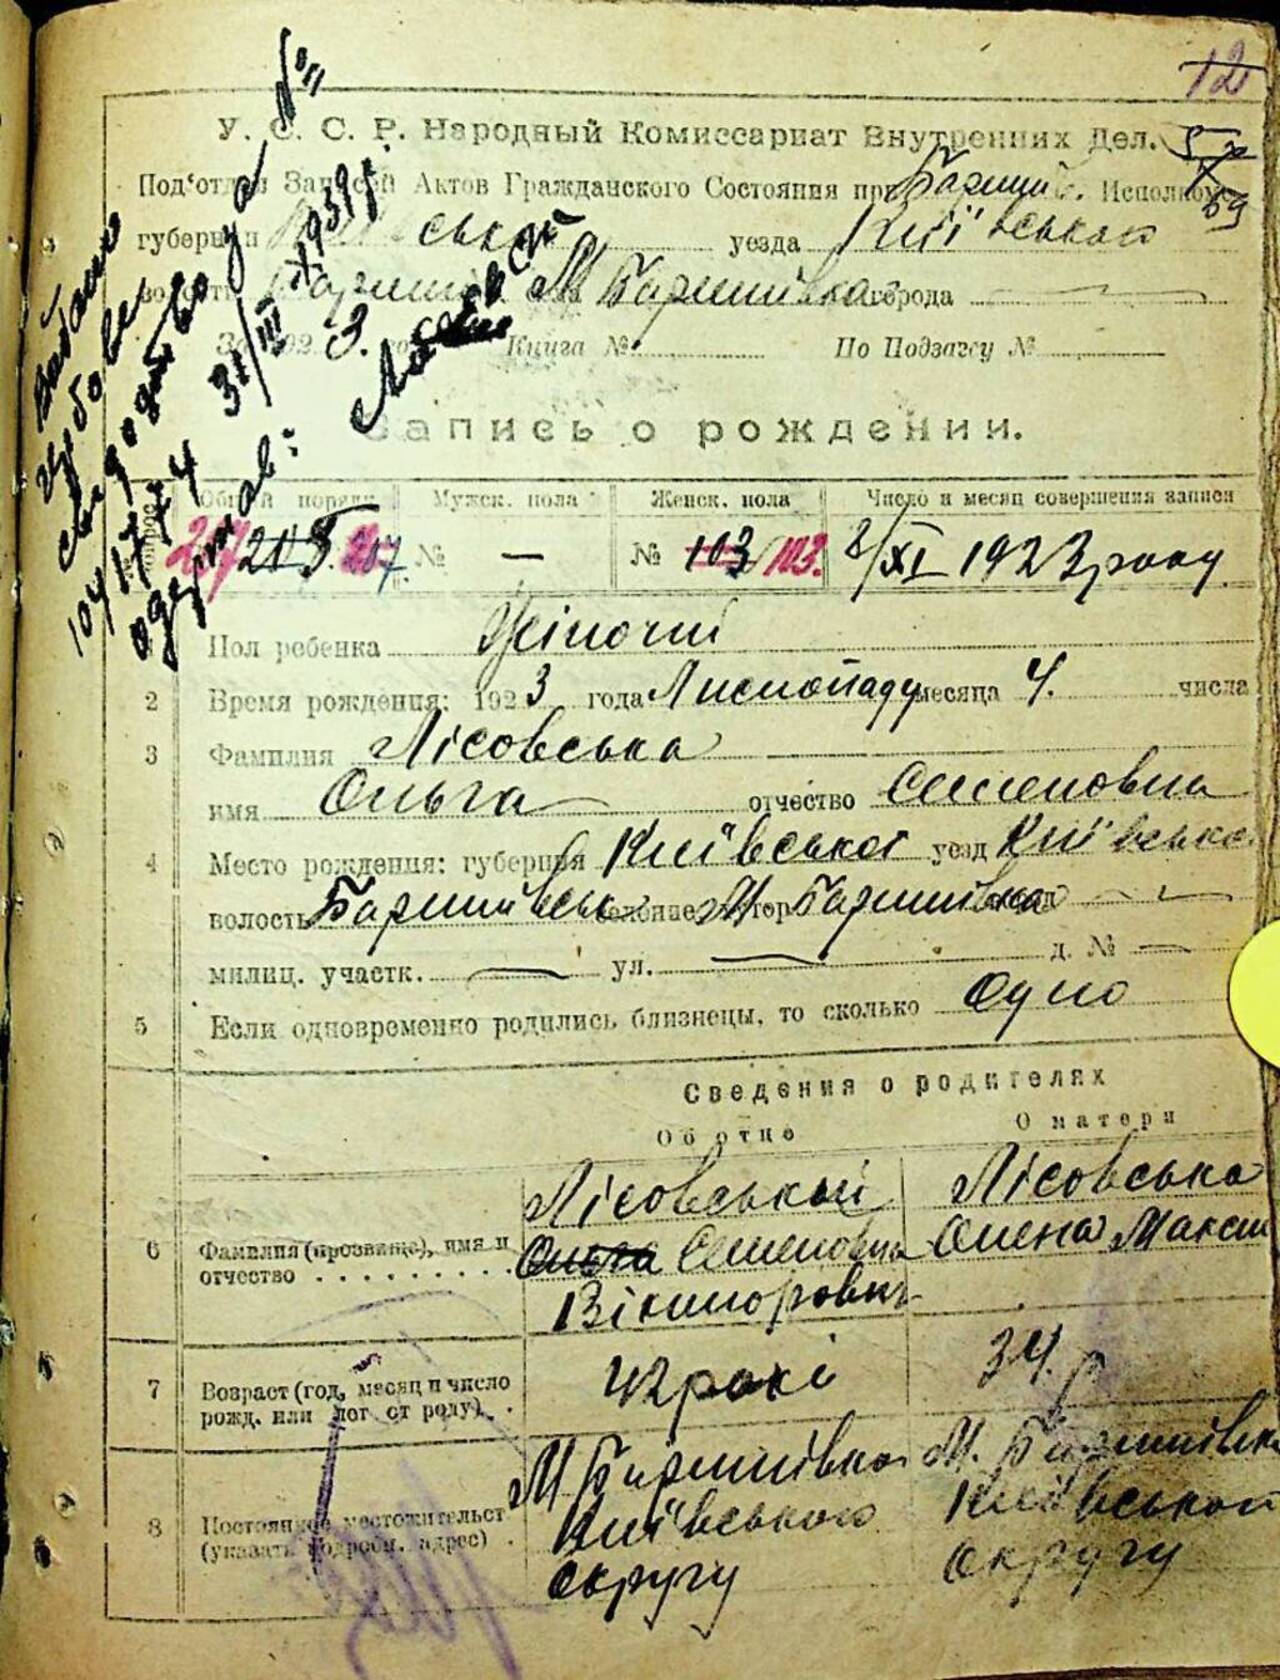 12
У. С. С. Р. Народный Комиссариат Внутренних Дел.
Под'отдел Записей Актов Гражданского Состояния при Бариш. Исполкоме
губернии уезда Київського
М Баришівка города
За 192 3. го Книга № По Подзагсу №
Запись о рождении.
Общий порядк Мужск. пола Женск. пола Число и месяц совершения записи
207 205 207. № — № 103 103. 8/XI 1923 року
Пол ребенка Жіночий
2 Время рождения: 1923 года Листопаду месяца 4. числа
3 Фамилия Лісовська
имя Ольга отчество Семеновна
4 Место рождения: губерния Київської уезд Київсько
волость Баришівськ М Баришівка
милиц. участк. — ул. — д. № —
5 Если одновременно родились близнецы, то сколько Одно
Сведения о родителях
Об отце О матери
6 Фамилия (прозвище), имя и отчество
Лісовський
Ольга Семенович
Вікторович
Лісовська
Олена Максим
7 Возраст (год, месяц и число рожд. или лет от роду)
42 рокі
34. р
8 Постоянное местожительст (указать подробн. адрес)
М Баришівка
Київського
округу
М. Баришівка
Київського
округу
Видано
свидоцтво за №
1041774 31/III 1939р.
одержав: